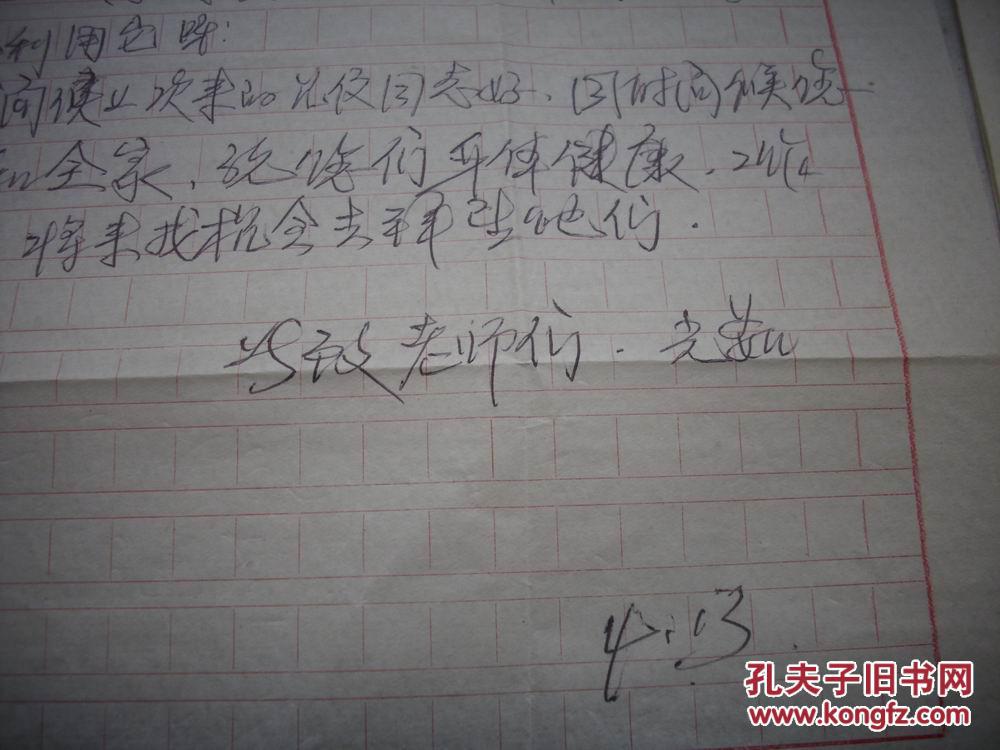 利用它呀:
问候上次来的 同志好、同时问候饶
和全家、祝饶们身体健康、
将来找机会去拜 他们.
此致 老师们. 光
4.13
孔夫子旧书网
www.kongfz.com